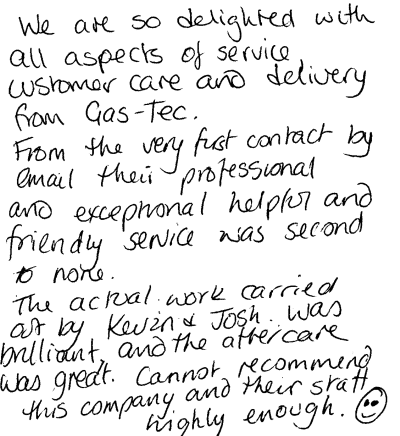 We are so delighted with
all aspects of service,
customer care and delivery
from Gas-Tec.
From the very first contact by
email their professional
and exceptional helpful and
friendly service was second
to none.
The actual work carried
out by Kevin & Josh was
brilliant, and the aftercare
was great. Cannot recommend
this company and their staff
highly enough. ☺